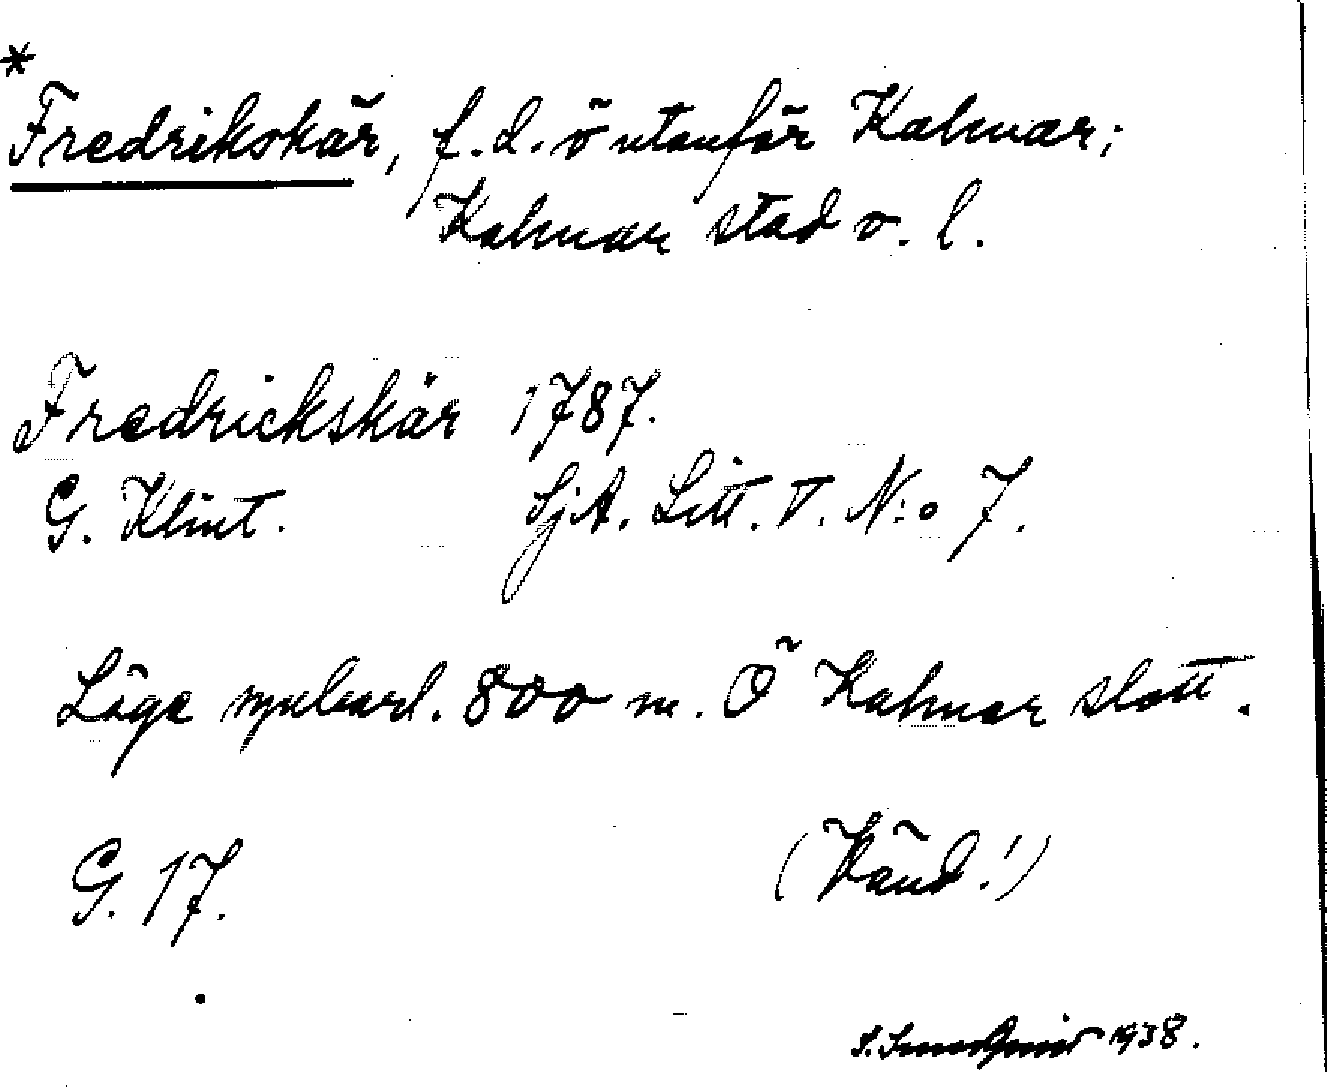 *
Fredrikskär, f.d. ö utanför Kalmar;
Kalmar stad o. l.
Fredrickskär 1787.
G. Klint. SjA. Litt. T. N:o 7.
Läge 800 m. Ö Kalmar slott.
G. 17. (Känd!)
1938.